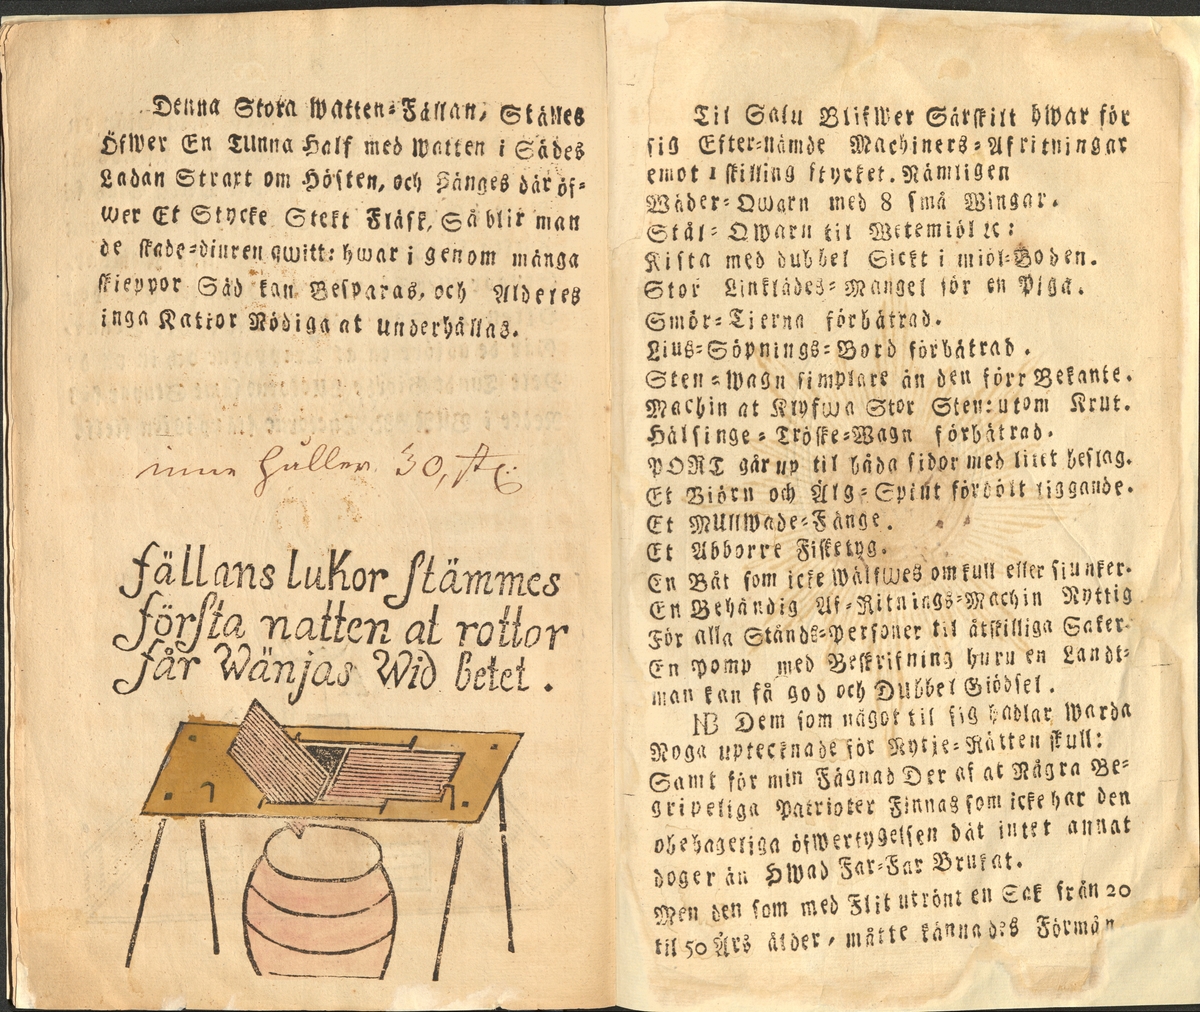 Denna Stora Watten=Fällan, Ställes
Öfwer En Tunna Half med Watten i Sädes
Ladan Straxt om Hösten, och Hänges där öf=
wer Et Stycke Stekt Fläsk, Så blir man
de skade=diuren qwitt: hwar i genom många
skieppor Säd kan Besparas, och Alderes
inga Kattor Nödiga at underhållas.
inne håller 30, st
fällans lukor stämmes
första natten at rottor
får Wänjas Wid betet.
Til Salu Blifwer Särskilt hwar för
sig Efter=nämde Machiners=Afritningar
emot 1 skilling stycket. Nämligen
Wäder=Qwarn med 8 små Wingar.
Stål=Qwarn til Wetemiöl ꝛc:
Kista med dubbel Sickt i miöl=Boden.
Stor Linklädes=Mangel för en Piga.
Smör=Tierna förbätrad.
Lius=Söpnings=Bord förbätrad.
Sten=Wagn simplare än den förr Bekante.
Machin at Klyfwa Stor Sten: utom Krut.
Hälsinge=Tröske=Wagn förbätrad.
PORT går up til båda sidor med litet beslag.
Et Biörn och Älg=Spiut fördolt liggande.
Et Mullwads=Fänge.
Et Abborre Fisketyg.
En Båt som icke wälfwes omkull eller siunker.
En Behändig Af=Ritnings=Machin Nyttig
För alla Stånds=Personer til åtskilliga Saker.
En Pomp med Beskrifning huru en Landt=
man kan få god och Dubbel Giödsel.
NB Dem som något til sig hadlar Warda
Noga uptecknade för Nytje=Rätten skull:
Samt för min Fägnad Der af at Några Be=
gripeliga Patrioter Finnas som icke har den
obehageliga öfwertygelsen dät intet annat
doger än Hwad Far=Far Brukat.
Men den som med Flit utrönt en Sak från 20
til 50 Års ålder, måtte känna des Förmån